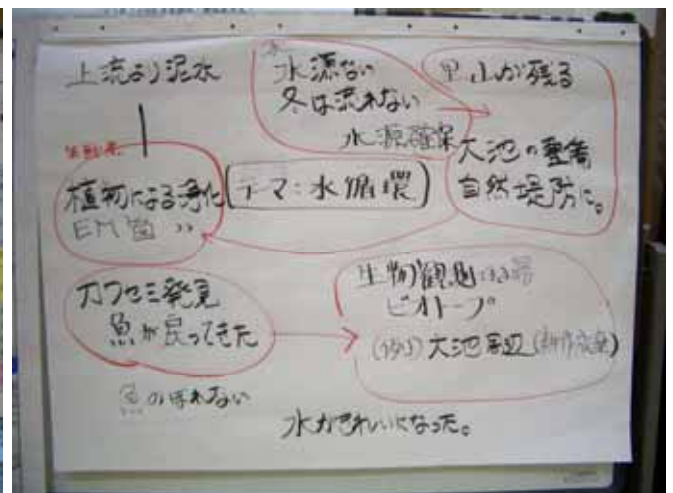 上流より泥水
水源ない
冬は流れない
水源確保
里山が残る
大池の整備
自然堤防に。
生態系
植物による浄化
EM菌 〃
(テーマ:水循環)
カワセミ発見
魚が戻ってきた
魚のぼれない
生物観測できる
ビオトープ
(例)大池周辺
水がきれいになった。